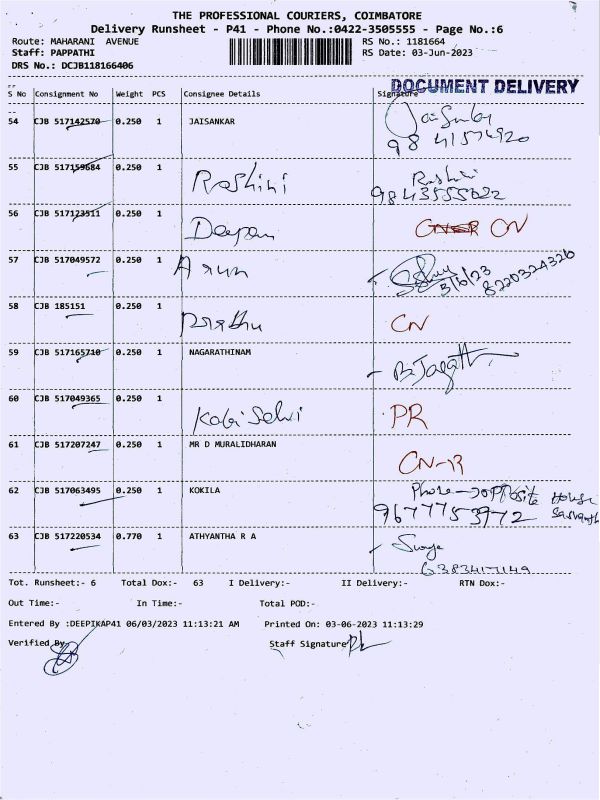 THE PROFESSIONAL COURIERS, COIMBATORE
Delivery Runsheet - P41 - Phone No.:0422-3505555 - Page No.:6
Route: MAHARANI AVENUE RS No.: 1181664
Staff: PAPPATHI RS Date: 03-Jun-2023
DRS No.: DCJB118166406
DOCUMENT DELIVERY
S No Consignment No Weight PCS Consignee Details Signature
54 CJB 517142570 0.250 1 JAISANKAR
9841574920
55 CJB 517159684 0.250 1
Roshini Roshini
9843555022
56 CJB 517123511 0.250 1
Deepan CN
57 CJB 517049572 0.250 1
Arun 3/6/23 8220324320
58 CJB 185151 0.250 1
Prabhu CN
59 CJB 517165710 0.250 1 NAGARATHINAM
B. Jagath
60 CJB 517049365 0.250 1
Kabi Selvi PR
61 CJB 517207247 0.250 1 MR D MURALIDHARAN
CN-R
62 CJB 517063495 0.250 1 KOKILA Phone → opposite House
9677753972
63 CJB 517220534 0.770 1 ATHYANTHA R A Surya
6383417149
Tot. Runsheet:- 6 Total Dox:- 63 I Delivery:- II Delivery:- RTN Dox:-
Out Time:- In Time:- Total POD:-
Entered By :DEEPIKAP41 06/03/2023 11:13:21 AM Printed On: 03-06-2023 11:13:29
Verified By Staff Signature